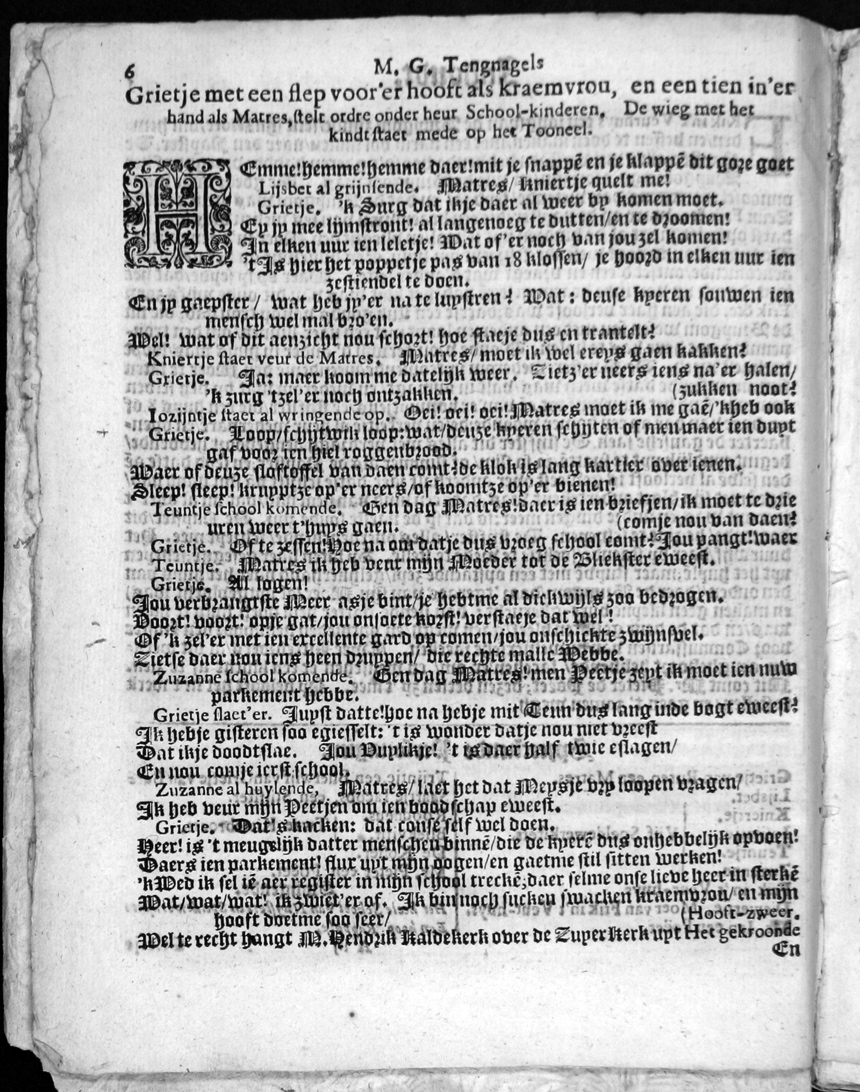 6
M. G. Tengnagels
Grietje met een slep voor'er hooft als kraemvrou, en een tien in'er
hand als Matres, stelt ordre onder heur School-kinderen. De wieg met het
kindt staet mede op het Tooneel.
HEmme! hemme! hemme daer! mit je snappē en je klappē dit goze goet
Lijsbet al grijnsende. Matres/ Kniertje quelt me!
Grietje. 'k Surg dat ikje daer al weer by komen moet.
Ey jy mee lijmstront! al langenoeg te dutten/ en te droomen!
In elken uur ien leletje! Wat of'er noch van jou zel komen!
't Is hier het poppetje pas van 18 klossen/ je hoord in elken uur ien
zestiendel te doen.
En jy gaepster/ wat heb jy'er na te luystren? Wat: deuse kyeren souwen ien
mensch wel mal bro'en.
Wel! wat of dit aenzicht nou schort! hoe staeje dus en trantelt?
Kniertje staet veur de Matres. Matres/ moet ik wel ereys gaen kakken?
Grietje. Ja: maer koom me datelijk weer. Zietz'er neers iens na'er halen/
'k zurg 'tzel'er noch ontzakken. (zukken noot?
Iozijntje staet al wringende op. Oei! oei! oei! Matres moet ik me gaē/'kheb ook
Grietje. Loop/ schijtwik loop: wat/ deuze kyeren schijten of men maer ien duyt
gaf voor ien hiel roggenbrood.
Waer of deuze sloftoffel van daen comt? de klok is lang kartier over ienen.
Sleep! sleep! kruyptze op'er neers/ of koomtze op'er bienen!
Teuntje school komende. Gen dag Matres! daer is ien briefjen/ ik moet te drie
uren weer t'huys gaen. (comje nou van daen?
Grietje. Of te zessen! Hoe na om datje dus vroeg school comt? Jou pangt! waer
Teuntje. Matres ik heb veur mijn Moeder tot de Bliekster eweest.
Grietje. Al logen!
Jou verbrangtste Meer asje bint/ je hebtme al dickwijls zoo bedrogen.
Voort! voort! opje gat/ jou onsoete korst! verstaeje dat wel!
Of 'k zel'er met ien excellente gard op comen/ jou onschickte zwijnsvel.
Zietse daer nou iens heen druppen/ die rechte malle Webbe.
Zuzanne school komende. Gen dag Matres! men Peetje zeyt ik moet ien nuw
parkement hebbe.
Grietje slaet'er. Juyst datte! hoe na hebje mit Teun dus lang inde bogt eweest?
Ik hebje gisteren soo egiesselt: 't is wonder datje nou niet vreest
Dat ikje doodtslae. Jou Vuylikje! 't is daer half twie eslagen/
En nou comje ierst school.
Zuzanne al huylende, Matres/ laet het dat Meysje vry loopen vragen/
Ik heb veur mijn Peetjen om ien boodschap eweest.
Grietje. Dat's kacken: dat conse self wel doen.
Heer! is 't meugelijk datter menschen binnē/ die de kyerē dus onhebbelijk opvoen!
Daers ien parkement! flur uyt mijn oogen/ en gaetme stil sitten werken!
'k Wed ik sel iē aer register in mijn school treckē; daer selme onse lieve heer in sterkē
Wat/ wat/ wat! ik zwiet'er of. Ik bin noch sucken swacken kraemvrou/ en mijn
hooft doetme soo seer/ (Hooft-zweer.
Wel te recht hangt M. Hendrik Kaldekerk over de Zuyer Kerk uyt Het gekroonde
En